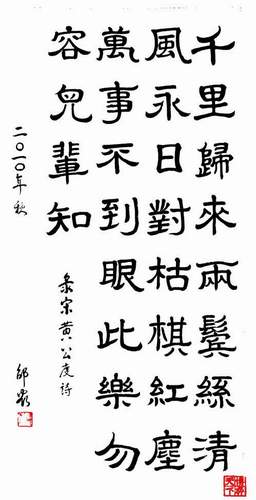 千里歸來兩鬢絲清
風永日對枯棋紅塵
萬事不到眼此樂勿
容兒輩知
录宋黄公度诗
二〇一〇年秋